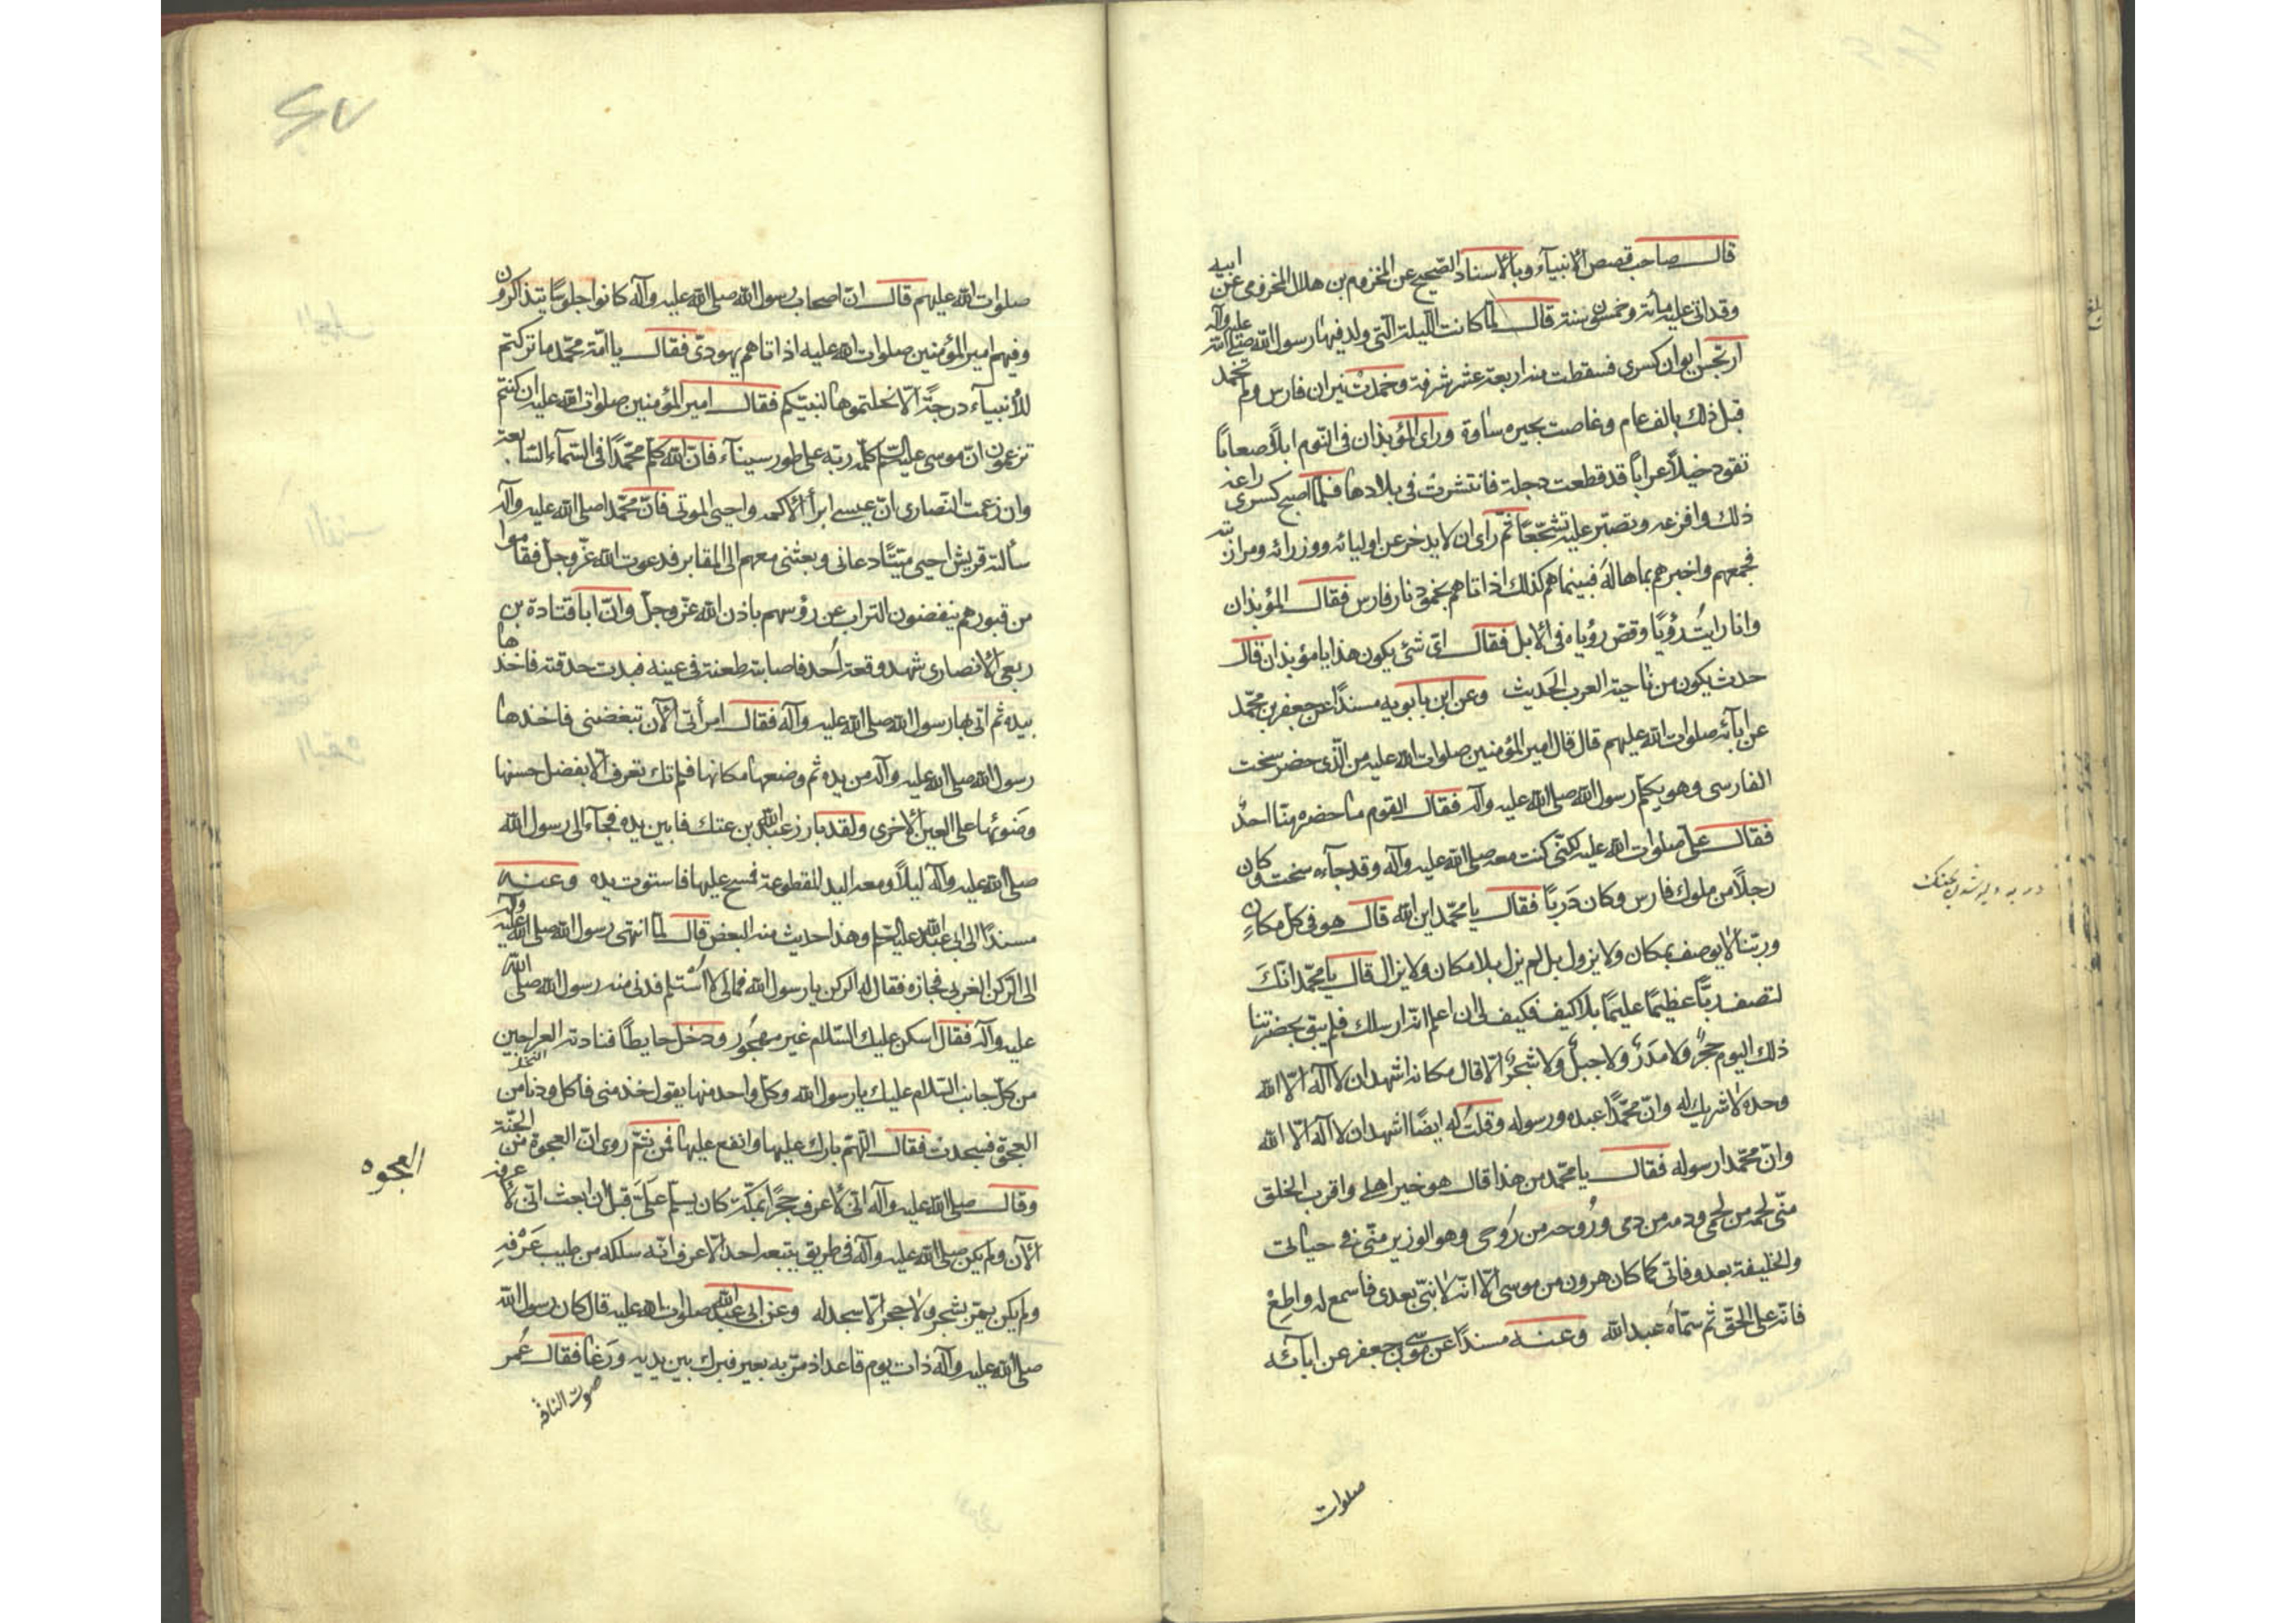 قالـــ صاحب قصص الانبيآء وبالاسناد الصحيح عن المخزوم بن هلال المخزومى عن ابيه
وقد اتى عليه مأئة وخمسون سنة قالـــ لما كانت الليلة التى ولد فيها رسول الله صلى الله عليه وآله
ارتجس ايوان كسرى فسقطت منه اربعة عشر شرفة وخمدت نيران فارس ولم تخمد
قبل ذلك بالف عام وغاصت بحيره ساوة وراى المؤبذان فى النوم ابلاً صعاباً
تقود خيلاً عراباً قد قطعت دجلة فانتشرت فى بلادها فلما اصبح كسرى راعه
ذلك وافزعه وتصبّر عليه تشجّعاً ثم راى ان لا يدخر عن اوليائه ووزرائه ومرازبته
فجمعهم واخبرهم بما هاله فبينما هم كذلك اذ اتاهم بخمود نار فارس فقالـــ المؤبذان
وانا رايت رؤيا وقص رؤياه فى الابل فقالـــ اى شئ يكون هذا يا مؤبذان قالـ
حدث يكون من ناحية العرب الحديث وعن ابن بابويه مسنداً عن جعفر بن محمّد
عن ابآئه صلوات الله عليهم قال قال امير المؤمنين صلوات الله عليه من الّذى حضر سخت
الفارسى وهو يكلم رسول الله صلى الله عليه وآله فقالـــ القوم ما حضره منّا احدٌ
فقالـــ على صلوات الله عليه لكنّى كنت معه صلى الله عليه وآله وقد جآءه سخت وكان
رجلاً من ملوك فارس وكان دَرِباً فقالـــ يا محمّد اين الله قالـــ هو فى كل مكانٍ
وربّنا لا يوصف بمكان ولا يزول بل لم يزل بلا مكان ولا يزال قالـــ يا محمّد انّكَ
لتصف ربّاً عظيماً عليماً بلا كيف فكيف لى ان اعلم انّه ارسلك فلم يبق بحضرتنا
ذلك اليوم حجرٌ ولا مدَرٌ ولا جبلٌ ولا شجرٌ الّا قال مكانه اشهد ان لا اله الّا الله
وحده لا شريك له وانّ محمّداً عبده ورسوله وقلت له ايضاً اشهد ان لا اله الّا الله
وانّ محمّدا رسوله فقالـــ يا محمّد من هذا قال هو خير اهلى واقرب الخلق
منّى لحمه من لحمى ودمه من دمى وروحه من روحى وهو الوزير منّى فى حياتى
والخليفة بعد وفاتى كما كان هرون من موسى الّا انّه لا نبىّ بعدى فاسمع له واطعْ
فانّه على الحقّ ثم سمّاه عبد الله وعنه مسنداً عن موسى بن جعفر عن ابآئه
صلوات
صلوات الله عليهم قالـــ انّ اصحاب رسول الله صلى الله عليه وآله كانوا جلوساً يتذاكرون
وفيهم امير المؤمنين صلوات الله عليه اذ اتاهم يهودىّ فقالـــ يا امّة محمّد ما تركتم
للأنبيآء درجةً الّا نحلتموها لنبيّكم فقالـــ امير المؤمنين صلوات الله عليه ان كنتم
تزعمون انّ موسى عليه السلم كلّمه ربّه على طور سينآء فانّ الله كلّم محمّداً فى السّمآء السّابعة
وان زعمت النصارى انّ عيسى ابرأ الاكمه واحيى الموتى فانّ محمّدا صلى الله عليه وآله
سألته قريش احيى ميّتاً دعانى وبعثنى معهم الى المقابر فدعوت الله عزّ وجلّ فقاموا
من قبورهم ينفضون التراب عن رؤسهم باذن الله عزّ وجلّ وانّ ابا قتادة بن
ربعى الانصارى شهد وقعة اُحد فاصابته طعنة فى عينه فبدت حدقته فاخذها
بيده ثم اتى بها رسول الله صلى الله عليه وآله فقالـــ امرأتى الآن تبغضنى فاخذها
رسول الله صلى الله عليه وآله من يده ثم وضعها مكانها فلم تك تعرف الّا بفضل حسنها
وضوئها على العين الاخرى ولقد بارز عبد الله بن عتك فابين يده فجآء الى رسول الله
صلى الله عليه وآله ليلاً ومعه اليد المقطوعة فمسح عليها فاستوت يده وعنه
مسنداً الى ابى عبد الله عليه السلم وهذا حديث منه البعض قالـــ لما انتهى رسول الله صلى الله عليه وآله
الى الرّكن الغربى فجازه فقال له الركن يا رسول الله فما لى لا اُستلم فدنى منه رسول الله صلى الله
عليه وآله فقال اسكن عليك السّلام غير مهجور ودخل حايطاً فنادته العراجين
من كلّ جانب السّلام عليك يا رسول الله وكلّ واحد منها يقول خذ منى فاكل ودنا من النخلة
العجوة فسجدت فقالـــ اللّهمّ بارك عليها وانفع عليها فمن ثمّ روى انّ العجوة من الجنّة
وقالـــ صلى الله عليه وآله انّى لاعرف حجراً بمكّة كان يسلّم علىّ قبل ان ابعث انّى لأعرفه
الآن ولم يكن صلى الله عليه وآله فى طريق يتبعه احد الّا عرف انّه سلكه من طيب عَرْفه
ولم يكن يمرّ بشجر ولا حجر الّا سجد له وعن ابى عبد الله صلوات الله عليه قال كان رسول الله
صلى الله عليه وآله ذات يوم قاعدا اذ مرّ به بعير فبرك بين يديه ورغا فقالـــ عمر
صوت الناقة
العجوه